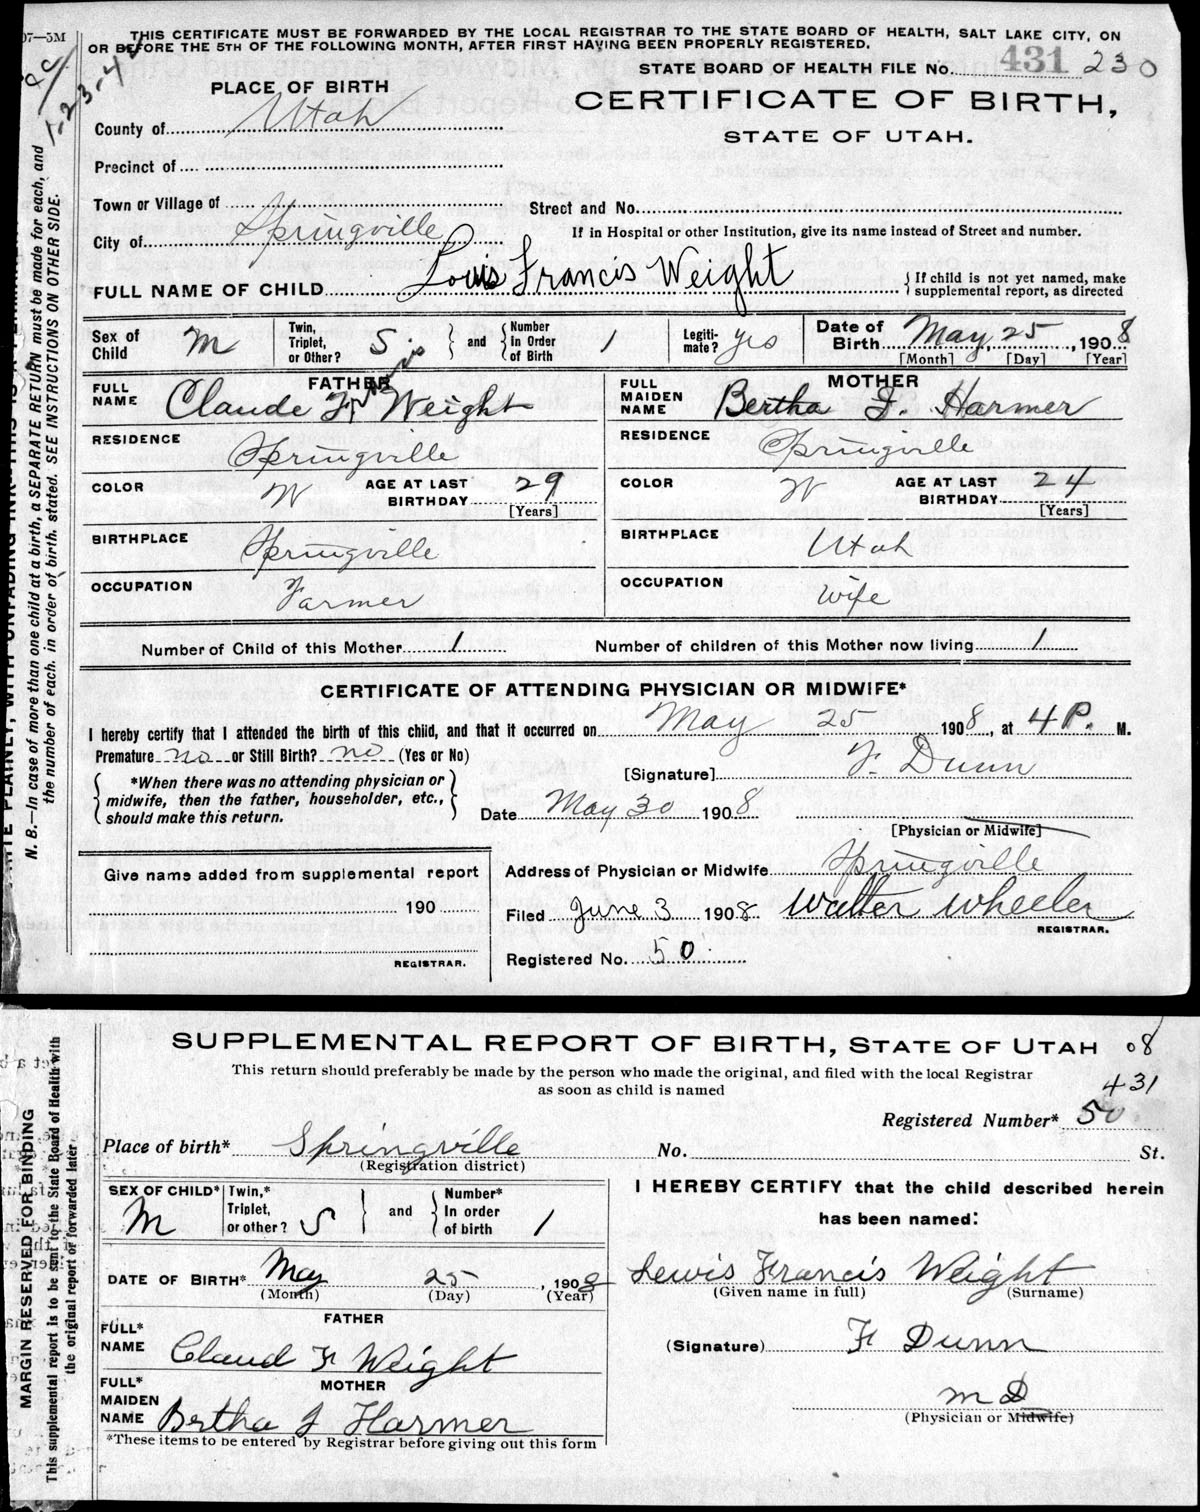 07—5M
THIS CERTIFICATE MUST BE FORWARDED BY THE LOCAL REGISTRAR TO THE STATE BOARD OF HEALTH, SALT LAKE CITY, ON
OR BEFORE THE 5TH OF THE FOLLOWING MONTH, AFTER FIRST HAVING BEEN PROPERLY REGISTERED.
STATE BOARD OF HEALTH FILE No. 431 230
PLACE OF BIRTH
CERTIFICATE OF BIRTH,
STATE OF UTAH.
County of Utah
Precinct of
Town or Village of
Street and No.
City of Springville
If in Hospital or other Institution, give its name instead of Street and number.
FULL NAME OF CHILD Louis Francis Weight { If child is not yet named, make
supplemental report, as directed
Sex of Child M Twin, Triplet, or Other? S. and Number In Order of Birth 1 Legiti-mate? yes Date of Birth May 25, 1908
[Month] [Day] [Year]
FATHER
FULL NAME Claude Francis Weight
MOTHER
FULL MAIDEN NAME Bertha J. Harmer
RESIDENCE Springville
RESIDENCE Springville
COLOR W AGE AT LAST BIRTHDAY 29 [Years]
COLOR W AGE AT LAST BIRTHDAY 24 [Years]
BIRTHPLACE Springville
BIRTHPLACE Utah
OCCUPATION Farmer
OCCUPATION Wife
Number of Child of this Mother 1 Number of children of this Mother now living 1
CERTIFICATE OF ATTENDING PHYSICIAN OR MIDWIFE*
I hereby certify that I attended the birth of this child, and that it occurred on May 25 1908, at 4 P. M.
Premature no or Still Birth? no (Yes or No)
[Signature] F. Dunn
*When there was no attending physician or
midwife, then the father, householder, etc.,
should make this return.
Date May 30 1908
[Physician or Midwife]
Address of Physician or Midwife Springville
Give name added from supplemental report
190
REGISTRAR.
Filed June 3 1908 Walter Wheeler
REGISTRAR.
Registered No. 50
N. B.—In case of more than one child at a birth, a SEPARATE RETURN must be made for each, and
the number of each, in order of birth, stated. SEE INSTRUCTIONS ON OTHER SIDE.
SUPPLEMENTAL REPORT OF BIRTH, STATE OF UTAH 08
This return should preferably be made by the person who made the original, and filed with the local Registrar
as soon as child is named
431
Registered Number* 50
Place of birth* Springville
(Registration district)
No. St.
SEX OF CHILD* M Twin,* Triplet, or other? S and Number* In order of birth 1
I HEREBY CERTIFY that the child described herein
has been named:
DATE OF BIRTH* May 25, 1908
(Month) (Day) (Year)
Lewis Francis Weight
(Given name in full) (Surname)
FATHER
FULL* NAME Claud F Weight
(Signature) F Dunn
MOTHER
FULL* MAIDEN NAME Bertha J Harmer
M D
(Physician or Midwife)
*These items to be entered by Registrar before giving out this form
MARGIN RESERVED FOR BINDING
This supplemental report is to be sent to the State Board of Health with
the original report or forwarded later